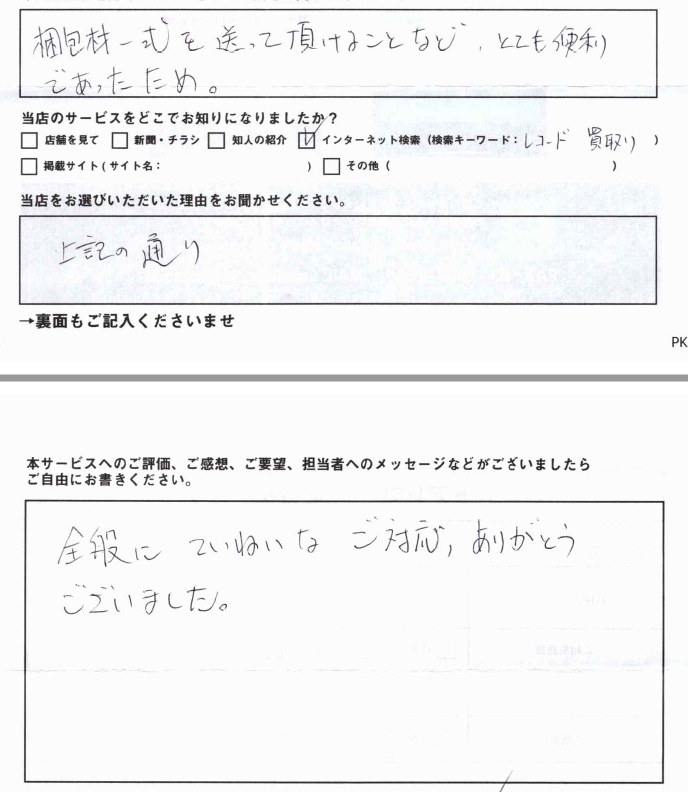 梱包材一式を送って頂けることなど、とても便利
であったため。
当店のサービスをどこでお知りになりましたか？
□ 店舗を見て □ 新聞・チラシ □ 知人の紹介 ☑ インターネット検索（検索キーワード：レコード 買取り ）
□ 掲載サイト（サイト名： ） □ その他（ ）
当店をお選びいただいた理由をお聞かせください。
上記の通り
→裏面もご記入くださいませ
PK
本サービスへのご評価、ご感想、ご要望、担当者へのメッセージなどがございましたら
ご自由にお書きください。
全般に ていねいな ご対応, ありがとう
ございました。